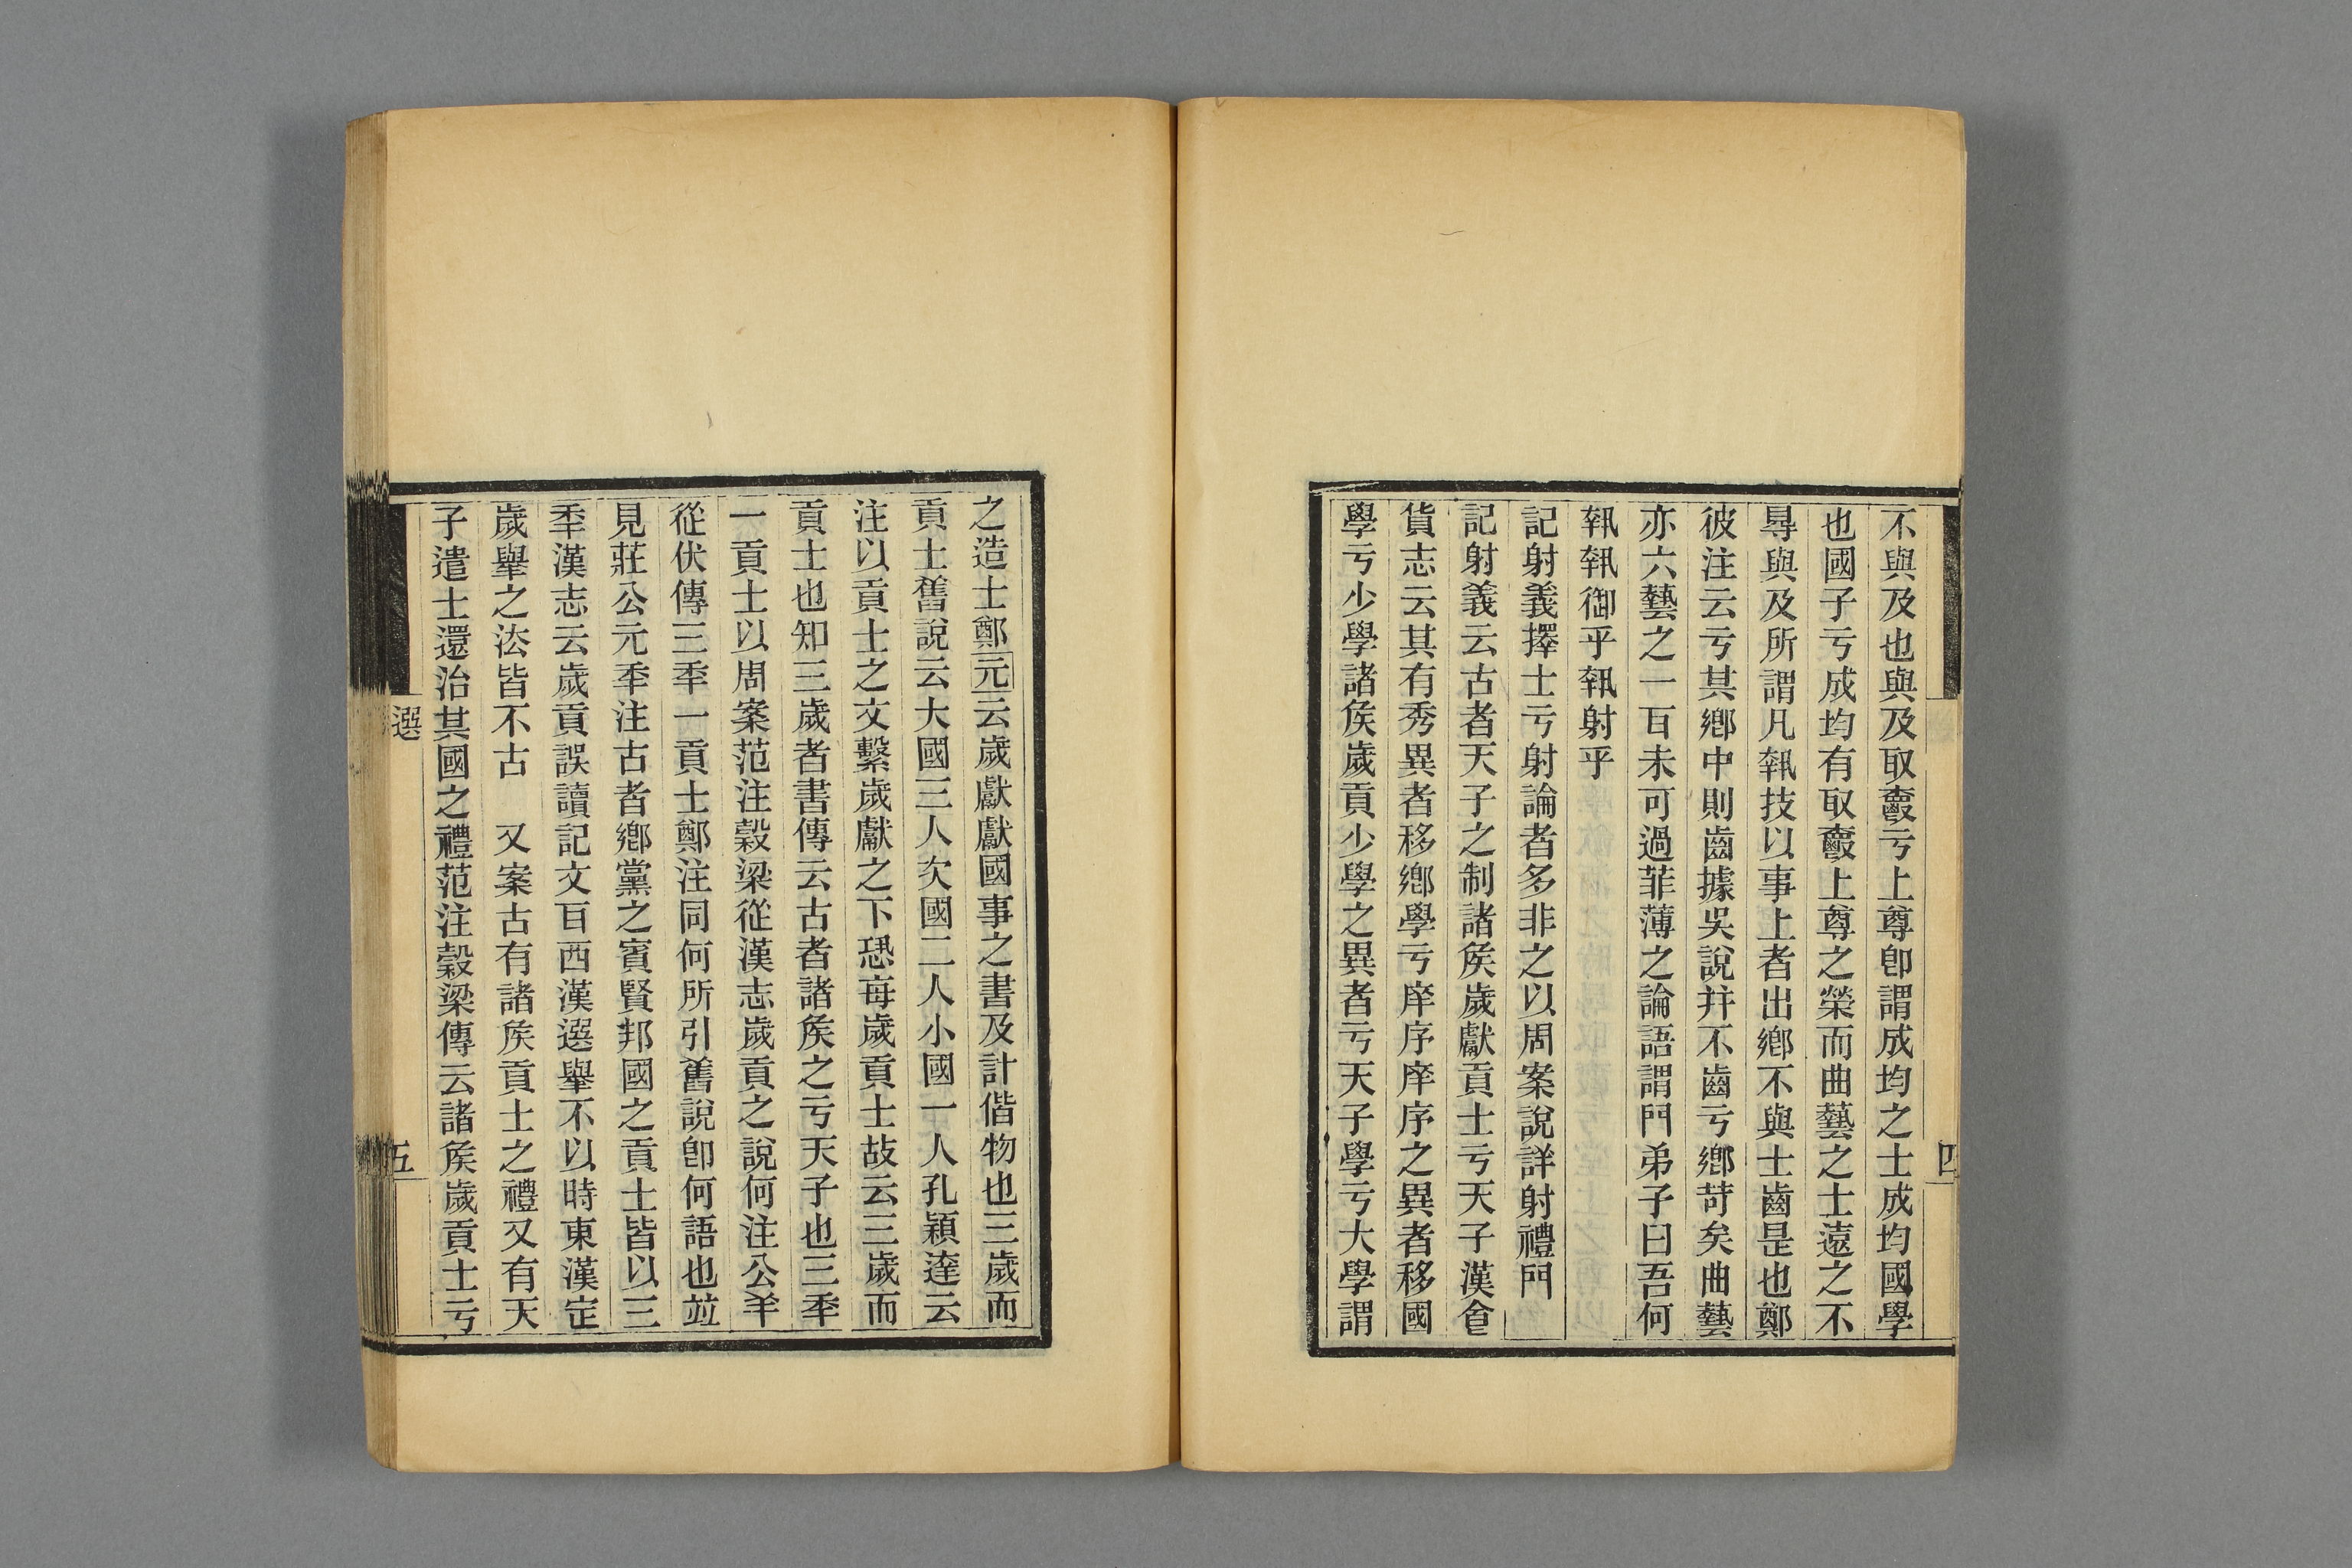 四
不與及也與及取𣝣亏上尊卽謂成均之士成均國學
也國子亏成均有取𣝣上尊之榮而曲藝之士遠之不
㝵與及所謂凡執技以事上者出鄉不與士齒是也鄭
彼注云亏其鄉中則齒據吳說幷不齒亏鄉苛矣曲藝
亦六藝之一百未可過菲薄之論語謂門弟子曰吾何
執執御乎執射乎
記射義擇士亏射論者多非之以周案說詳射禮門
記射義云古者天子之制諸矦歲獻貢士亏天子漢食
貨志云其有秀異者移鄉學亏庠序庠序之異者移國
學亏少學諸矦歲貢少學之異者亏天子學亏大學謂
之造士鄭元云歲獻獻國事之書及計偕物也三歲而
貢士舊說云大國三人次國二人小國一人孔穎達云
注以貢士之文繫歲獻之下恐每歲貢士故云三歲而
貢士也知三歲者書傳云古者諸矦之亏天子也三秊
一貢士以周案范注穀梁從漢志歲貢之說何注公羊
從伏傳三秊一貢士鄭注同何所引舊說卽何語也竝
見莊公元秊注古者鄉黨之賓賢邦國之貢士皆以三
秊漢志云歲貢誤讀記文百西漢選舉不以時東漢定
歲舉之法皆不古　又案古有諸矦貢士之禮又有天
子遣士還治其國之禮范注穀梁傳云諸矦歲貢士亏
選
五